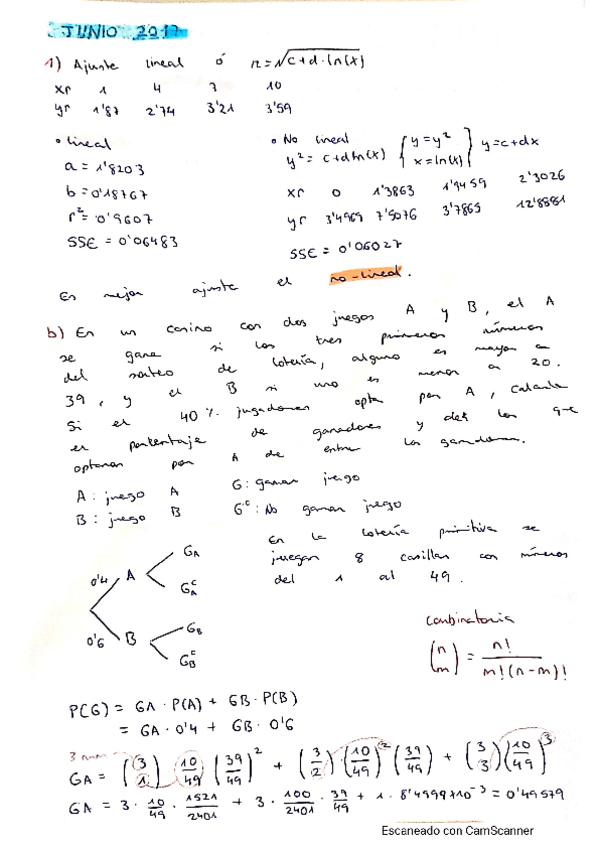 JUNIO 2017
1) Ajuste lineal ó n = √c+d·ln(x)
xr 1 4 7 10
yr 1'87 2'74 3'21 3'59
• Lineal
a = 1'8203
b = 0'18767
r² = 0'9607
SSE = 0'06483
• No lineal
y² = c+dln(x) { y = y² x = ln(x) } y = c+dx
xr 0 1'3863 1'9459 2'3026
yr 3'4969 7'5076 12'8881
SSE = 0'06027
Es mejor ajuste el no-lineal.
b) En un casino con dos juegos A y B, el A
se gana si los tres primeros números
del sorteo de lotería, alguno es mayor a
39, y el B si uno es menor a 20.
Si el 40% jugadores opta por A, calcula
el porcentaje de ganadores y de los que
optaron por A de entre los ganadores.
A: juego A
B: juego B
G: ganar juego
Gᶜ: No ganar juego
En la lotería primitiva se
juegan 8 casillas con números
del 1 al 49.
0'4 A GA
GAᶜ
0'6 B GB
GBᶜ
combinatoria
(n m) = n! / m!(n-m)!
P(G) = GA · P(A) + GB · P(B)
= GA · 0'4 + GB · 0'6
GA = (3 1) · 10/49 (39/49)² + (3 2) · (10/49)² (39/49) + (3 3) (10/49)³
GA = 3 · 10/49 · 1521/2401 + 3 · 100/2401 · 39/49 + 1 · 8'4999·10⁻³ = 0'49579
Escaneado con CamScanner